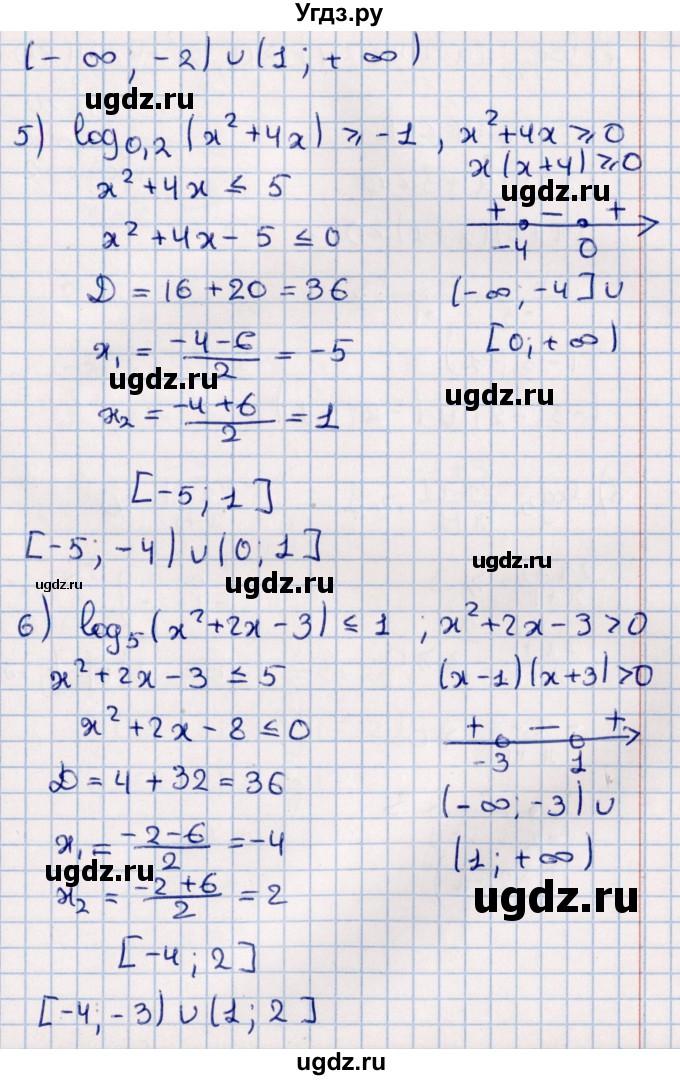 Угдз.ру
(- ∞; -2) ∪ (1; + ∞)
ugdz.ru
5) log₀,₂ (x² + 4x) ⩾ -1, x² + 4x ⩾ 0
x² + 4x ≤ 5
x (x + 4) ⩾ 0
ugdz.ru
x² + 4x - 5 ≤ 0
+ - +
-4 0
D = 16 + 20 = 36
(-∞; -4] ∪
[0; + ∞)
x₁ = (-4-6)/2 = -5
ugdz.ru
ugdz.ru
x₂ = (-4+6)/2 = 1
[-5; 1]
[-5; -4) ∪ (0; 1]
ugdz.ru
ugdz.ru
ugdz.ru
6) log₅ (x² + 2x - 3) ≤ 1 ; x² + 2x - 3 > 0
x² + 2x - 3 ≤ 5
(x-1) (x+3) > 0
x² + 2x - 8 ≤ 0
+ - +
-3 1
D = 4 + 32 = 36
(-∞; -3) ∪
(1; +∞)
x₁ = (-2-6)/2 = -4
x₂ = (-2+6)/2 = 2
ugdz.ru
ugdz.ru
[-4; 2]
[-4; -3) ∪ (1; 2]
ugdz.ru